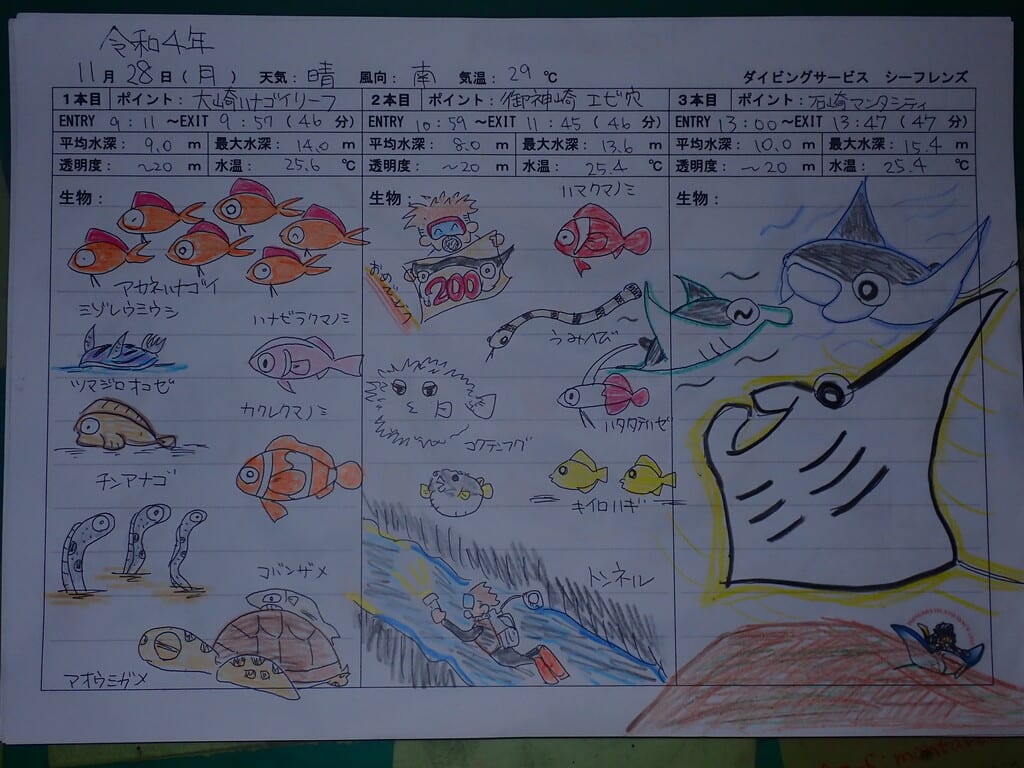 令和4年
11月28日(月) 天気:晴 風向:南 気温:29℃ ダイビングサービス シーフレンズ
1本目 ポイント:大崎ハナゴイリーフ
ENTRY 9:11 ~EXIT 9:57(46分)
平均水深:9.0 m 最大水深:14.0 m
透明度:~20 m 水温:25.6 ℃
生物:
アカネハナゴイ
ミゾレウミウシ
ハナビラクマノミ
ツマジロオコゼ
カクレクマノミ
チンアナゴ
コバンザメ
アオウミガメ
2本目 ポイント:御神崎 エビ穴
ENTRY 10:59 ~EXIT 11:45(46分)
平均水深:8.0 m 最大水深:13.6 m
透明度:~20 m 水温:25.4 ℃
生物:
ハマクマノミ
200
うみへび
ハタタテハゼ
コクテンフグ
キイロハギ
トンネル
3本目 ポイント:石崎マンタシティ
ENTRY 13:00 ~EXIT 13:47(47分)
平均水深:10.0 m 最大水深:15.4 m
透明度:~20 m 水温:25.4 ℃
生物: